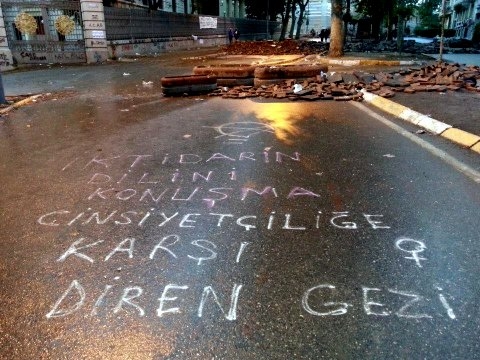 IKTIDARIN
DILINI
KONUŞMA
CINSIYETÇILIĞE
KARŞI ♀
DIREN GEZI